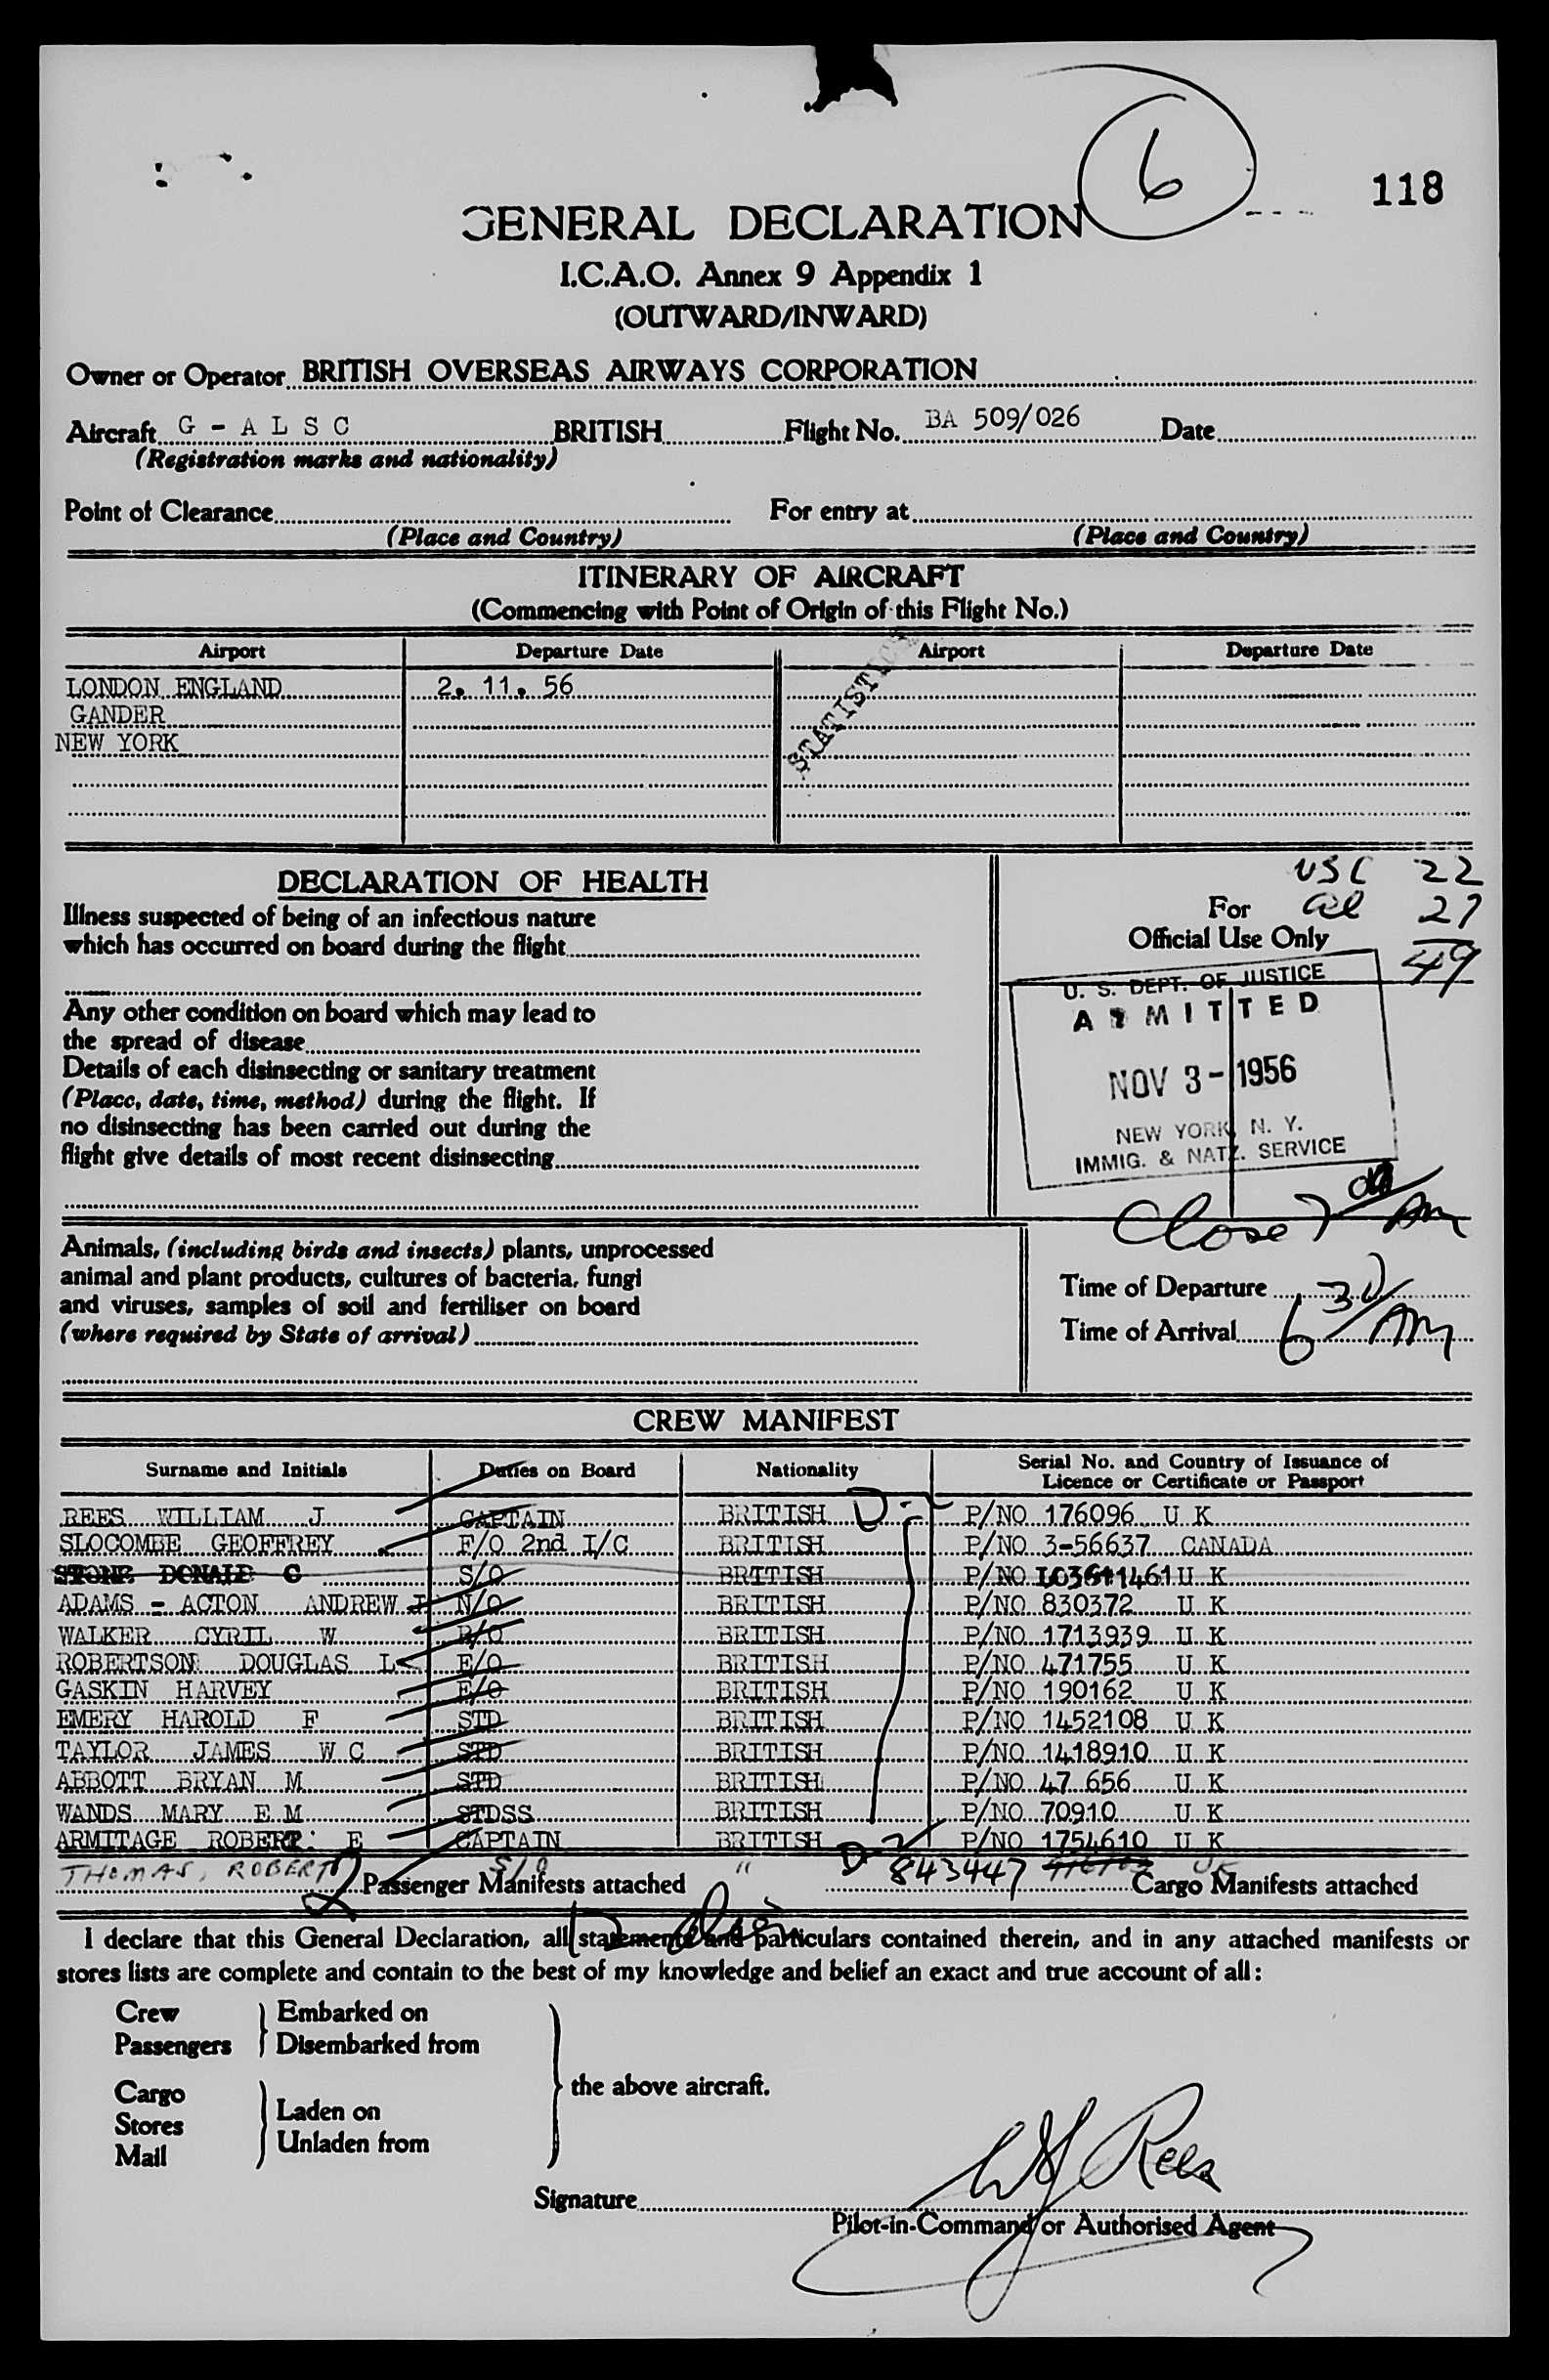 6
118
GENERAL DECLARATION
I.C.A.O. Annex 9 Appendix 1
(OUTWARD/INWARD)
Owner or Operator BRITISH OVERSEAS AIRWAYS CORPORATION
Aircraft G - A L S C BRITISH Flight No. BA 509/026 Date
(Registration marks and nationality)
Point of Clearance For entry at
(Place and Country) (Place and Country)
ITINERARY OF AIRCRAFT
(Commencing with Point of Origin of this Flight No.)
Airport Departure Date Airport Departure Date
LONDON ENGLAND 2. 11. 56
GANDER
NEW YORK
DECLARATION OF HEALTH
Illness suspected of being of an infectious nature
which has occurred on board during the flight
Any other condition on board which may lead to
the spread of disease
Details of each disinsecting or sanitary treatment
(Place, date, time, method) during the flight. If
no disinsecting has been carried out during the
flight give details of most recent disinsecting
USC 22
For al 27
Official Use Only 49
U. S. DEPT. OF JUSTICE
ADMITTED
NOV 3 - 1956
NEW YORK, N. Y.
IMMIG. & NATZ. SERVICE
Close 7 00 Am
Animals, (including birds and insects) plants, unprocessed
animal and plant products, cultures of bacteria, fungi
and viruses, samples of soil and fertiliser on board
(where required by State of arrival)
Time of Departure
Time of Arrival 6 30 Am
CREW MANIFEST
Surname and Initials Duties on Board Nationality Serial No. and Country of Issuance of
Licence or Certificate or Passport
REES WILLIAM J CAPTAIN BRITISH D-2 P/NO 176096 U K
SLOCOMBE GEOFFREY F/O 2nd I/C BRITISH P/NO 3-56637 CANADA
STONE DONALD G S/O BRITISH P/NO U K
ADAMS - ACTON ANDREW J N/O BRITISH P/NO 830372 U K
WALKER CYRIL W R/O BRITISH P/NO 1713939 U K
ROBERTSON DOUGLAS L E/O BRITISH P/NO 471755 U K
GASKIN HARVEY E/O BRITISH P/NO 190162 U K
EMERY HAROLD F STD BRITISH P/NO 1452108 U K
TAYLOR JAMES W C STD BRITISH P/NO 1418910 U K
ABBOTT BRYAN M STD BRITISH P/NO 47 656 U K
WANDS MARY E M STDSS BRITISH P/NO 70910 U K
ARMITAGE ROBERT E CAPTAIN BRITISH P/NO 1754610 U K
THOMAS, ROBERT S/O " D-2 843447 UK
Passenger Manifests attached Cargo Manifests attached
I declare that this General Declaration, all statements and particulars contained therein, and in any attached manifests or
stores lists are complete and contain to the best of my knowledge and belief an exact and true account of all:
Crew Embarked on
Passengers Disembarked from
the above aircraft.
Cargo
Stores Laden on
Mail Unladen from
Signature W J Rees
Pilot-in-Command or Authorised Agent